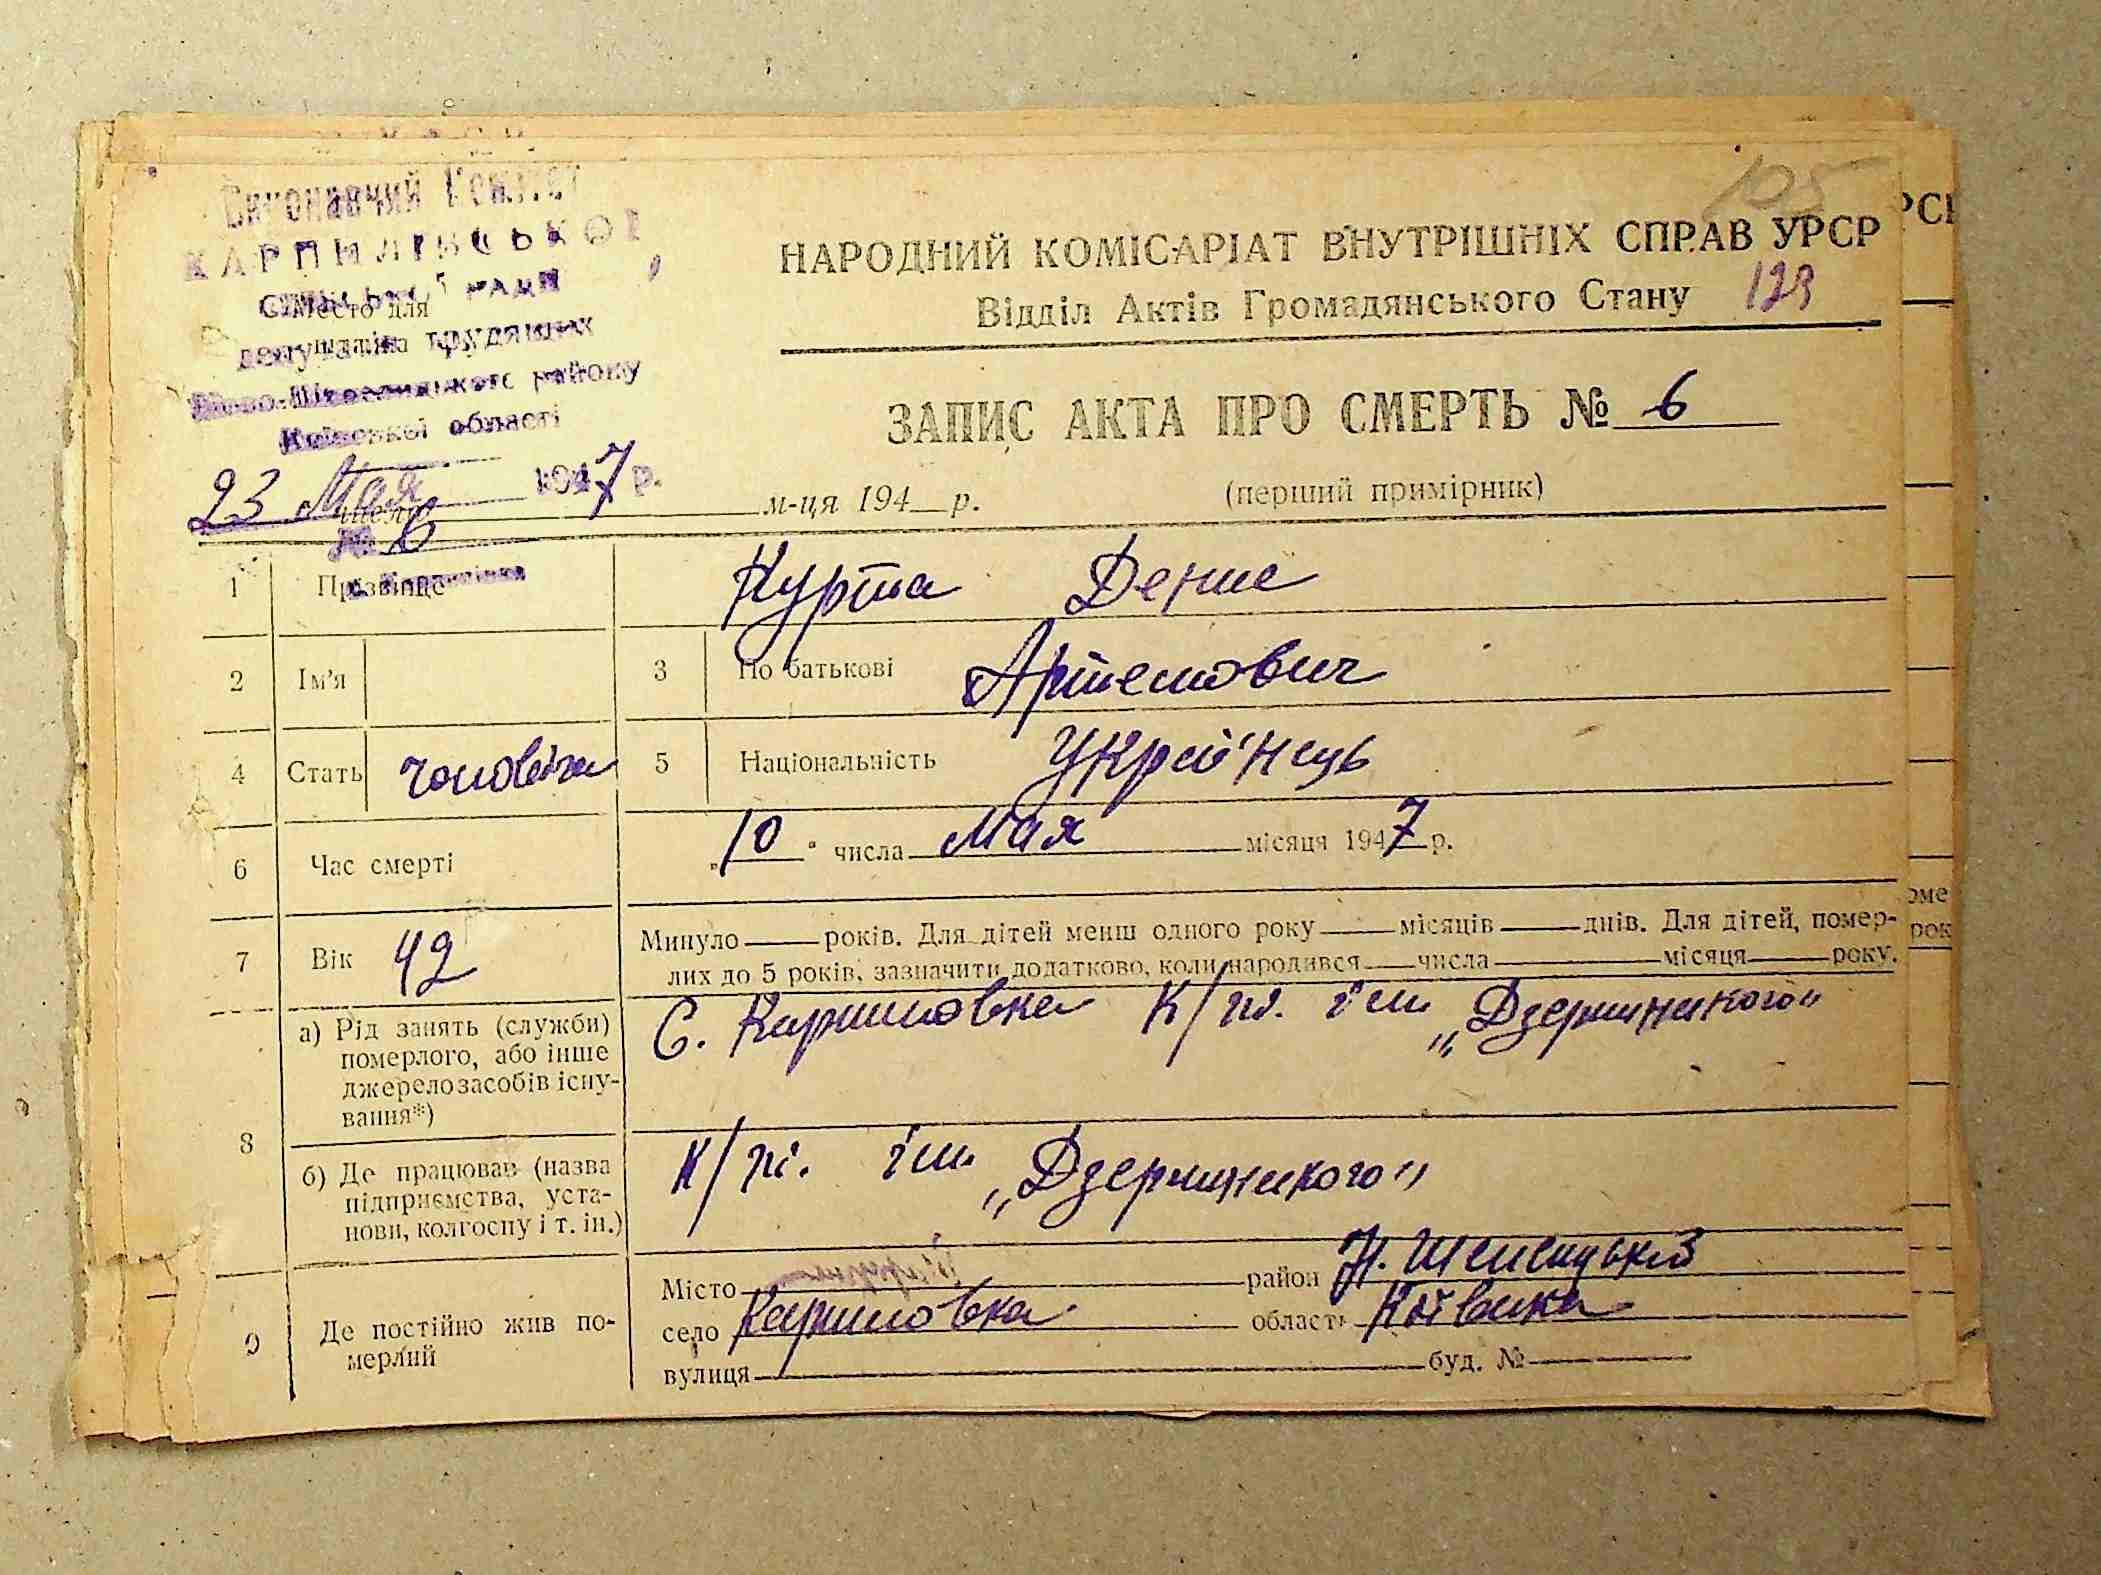 105
Виконавчий Комітет
КАРПИЛІВСЬКОЇ
сільської ради
Место для
депутатів трудящих
Ново-Шепелицького району
Київської області
23 Мая 1947 р.
№ 6
с. Карпилівка
НАРОДНИЙ КОМІСАРІАТ ВНУТРІШНІХ СПРАВ УРСР
Відділ Актів Громадянського Стану 123
ЗАПИС АКТА ПРО СМЕРТЬ № 6
м-ця 194 р. (перший примірник)
1 Прізвище Курта Денис
2 Ім'я 3 По батькові Артемович
4 Стать 5 Національність Украї'нець
6 Час смерті „10" числа Мая місяця 1947 р.
7 Вік 42 Минуло років. Для дітей менш одного року місяців днів. Для дітей, помер-
лих до 5 років, зазначити додатково, коли народився числа місяця року.
8 а) Рід занять (служби)
померлого, або інше
джерело засобів існу-
вання*)
С. Карпиловка к/гп. ім „Держинского"
б) Де працював (назва
підприємства, уста-
нови, колгоспу і т. ін.)
к/гп. ім „Держинского"
9 Де постійно жив по-
мерлий
Місто район Н. Шепелицький
село Карпиловка область Київська
вулиця буд. №